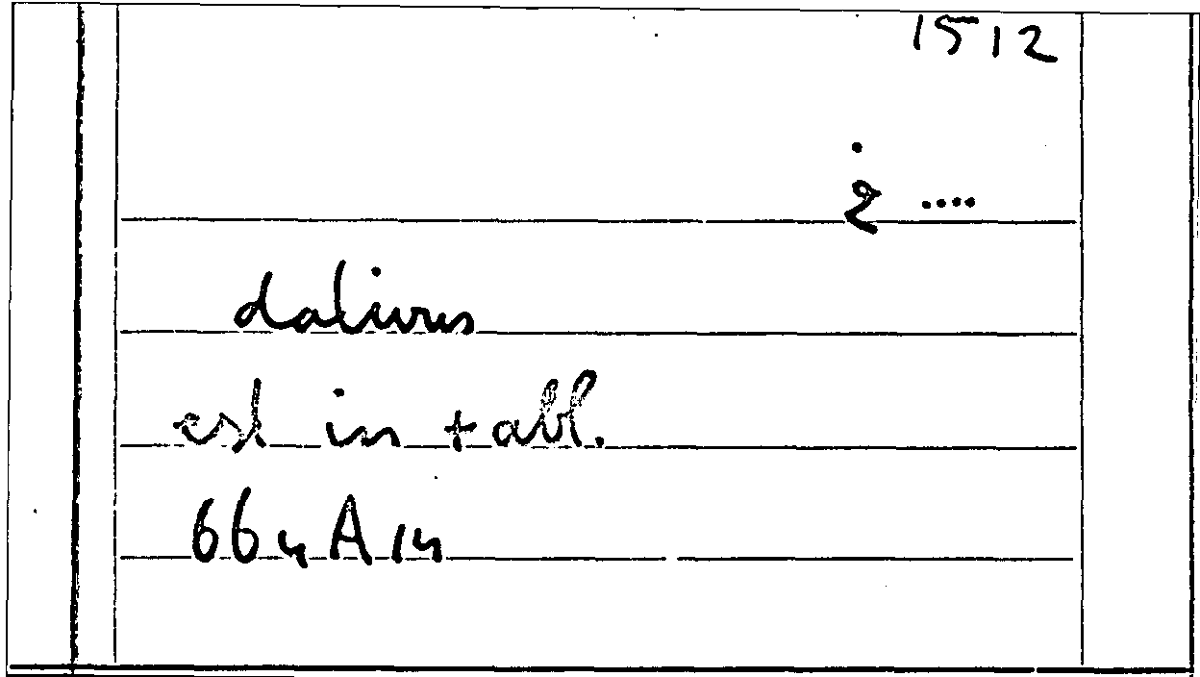 1512
2 ....
dativus
est in + abl.
664 A 14